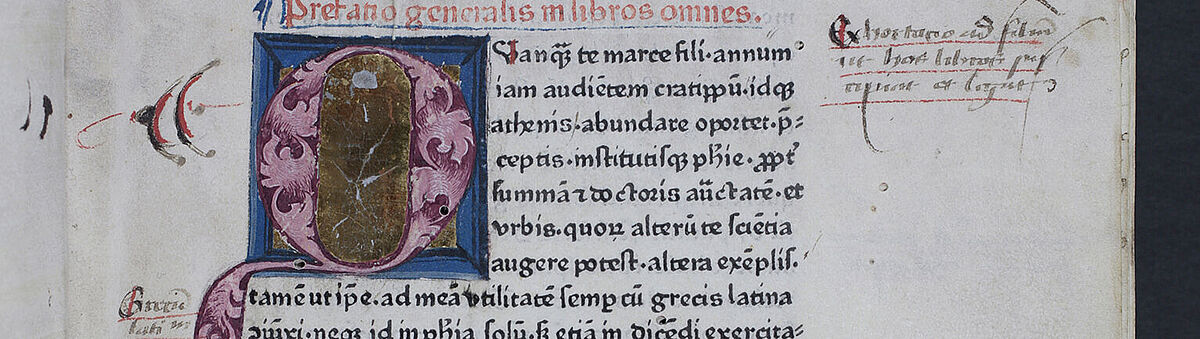 Prefatio generalis in libros omnes.
QUanq̃ te marce fili·annum
iam audiẽtem cratippũ·idq̃
athenis·abundare oportet·p̃-
ceptis·institutisq̃ phie·ꝓpt̃
summã ⁊ doctoris auctatẽ·et
vrbis·quoꝝ alterũ te sciẽtia
augere potest·altera exẽplis.
tamẽ ut ip̃e·ad meã vtilitatẽ semp cũ grecis latina
ↄiũxi·neq̃ id in phĩa solũ·sꝫ etiã in dicẽdi exercita-
Exhortatio ad filiũ
ut hos libros sus
cipiat et legat